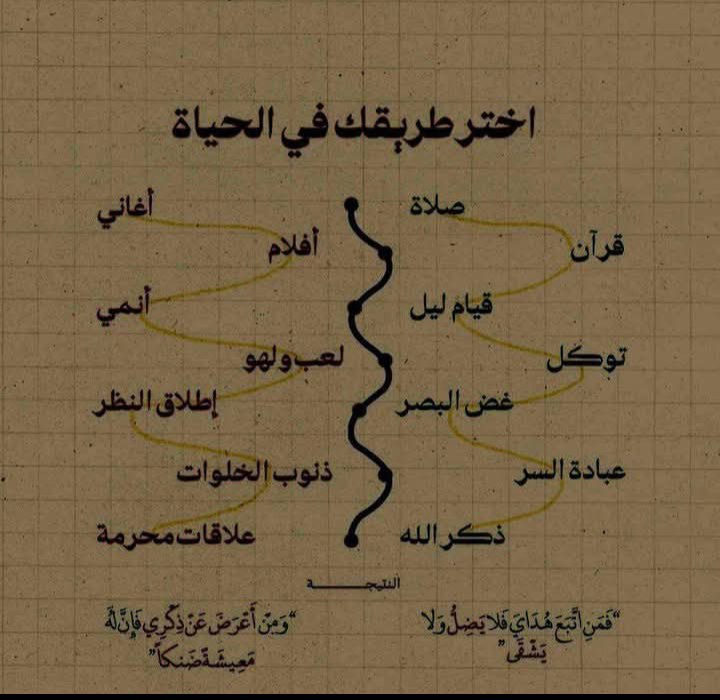 اختر طريقك في الحياة
صلاة
قرآن
قيام ليل
توكل
غض البصر
عبادة السر
ذكر الله
أغاني
أفلام
أنمي
لعب ولهو
إطلاق النظر
ذنوب الخلوات
علاقات محرمة
النتيجة
“فَمَنِ اتَّبَعَ هُدَايَ فَلَا يَضِلُّ وَلَا
يَشْقَى”
“وَمَنْ أَعْرَضَ عَنْ ذِكْرِي فَإِنَّ لَهُ
مَعِيشَةً ضَنكاً”